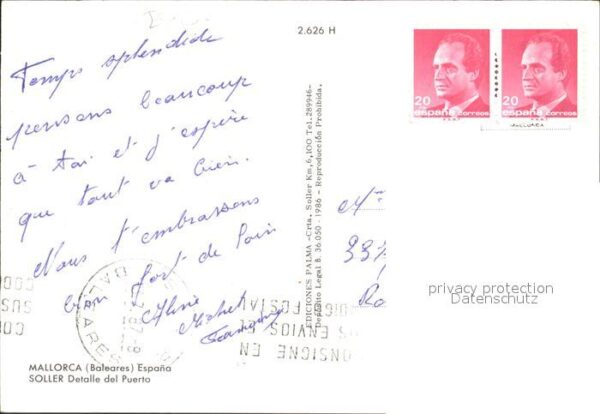 2.626 H
Temps splendide
pensons beaucoup
à toi et j'espère
que tout va bien.
Nous t'embrassons
bien fort de loin
Aline
Michel
EDICIONES PALMA -Crta. Soller Km, 6,100 Tel. 289946-
Depósito Legal B. 36.050 - 1986 - Reproducción Prohibida.
20
españa correos
20
españa correos
MALLORCA
337
privacy protection
Datenschutz
BALEARES
MALLORCA (Baleares) España
SOLLER Detalle del Puerto